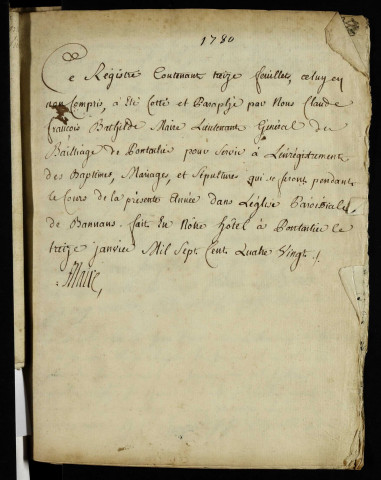 1780
Ce Registre Contenant treize feuillets, celuy cy
non Compris, à Eté Cotté et Paraphé par Nous Claude
francois Maire Lieutenant Général du
Bailliage de Pontarlier pour servir à L'enrégistrement
des Baptêmes, Mariages, et Sépultures qui se feront pendant
le Cours de la présente Année dans L'église Paroissiale
de Bannans. fait En Notre hôtel à Pontarlier le
treize janvier Mil Sept Cent Quatre Vingt ./.
Maire,